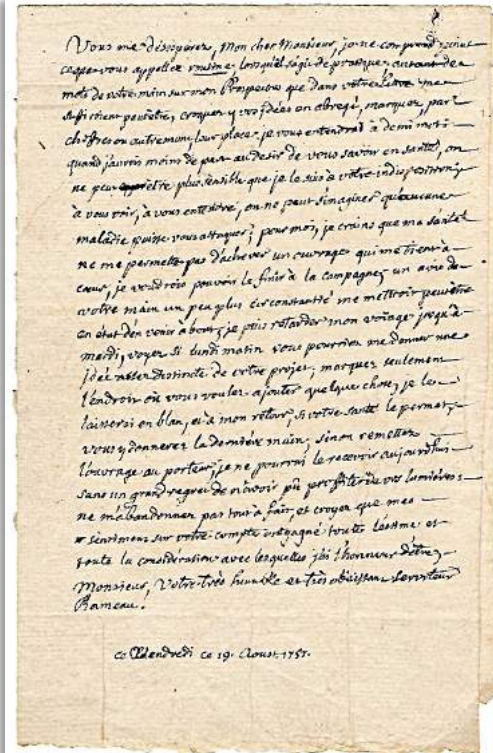 Vous me désespérez, Mon cher Monsieur, je ne comprend point
ce que vous appellez routine lorsqu'il s'agit de pratique, autant de
mots de votre main sur mon Prospectus que dans votre Lettre me
suffiroient peutetre, croquez y vos idées en abregé, marquez, par
chifres ou autrement, leur place, je vous entendrai à demi mot:
quand j'aurois moins de part au desir de vous savoir en santé, on
ne peut etre plus sensible que je le suis à votre indisposition,
à vous voir, à vous entendre, on ne peut s'imaginer qu'aucune
maladie puisse vous attaquer; pour moi, je crains que ma santé
ne me permette pas d'achever un ouvrage qui me tient à
cœur, je voudrois pouvoir le finir à la campagne; un avis de
votre main un peu plus circonstantié me mettroit peutetre
en état d'en venir à bout; je puis retarder mon voïage jusqu'à
mardi, voyez si lundi matin vous pourriez me donner une
idée assez distincte de votre projet; marquez seulement
l'endroit où vous voulez ajouter quelque chose, je le
laisserai en blan, et à mon retour, si votre santé le permet,
vous y donnerez la derniere main, sinon remettez
l'ouvrage au porteur, je ne pourrai le recevoir aujourdhui
sans un grand regret de n'avoir pû profiter de vos lumieres:
ne m'abandonnez pas tout à fait, et croyez que mes
sentimens sur votre compte ont gagné toute l'estime et
toute la consideration avec lesquelles j'ai l'honneur d'être,
Monsieur, Votre très humble et très obéissant Serviteur
Rameau.
ce Vendredi ce 19. Aoust. 1751.